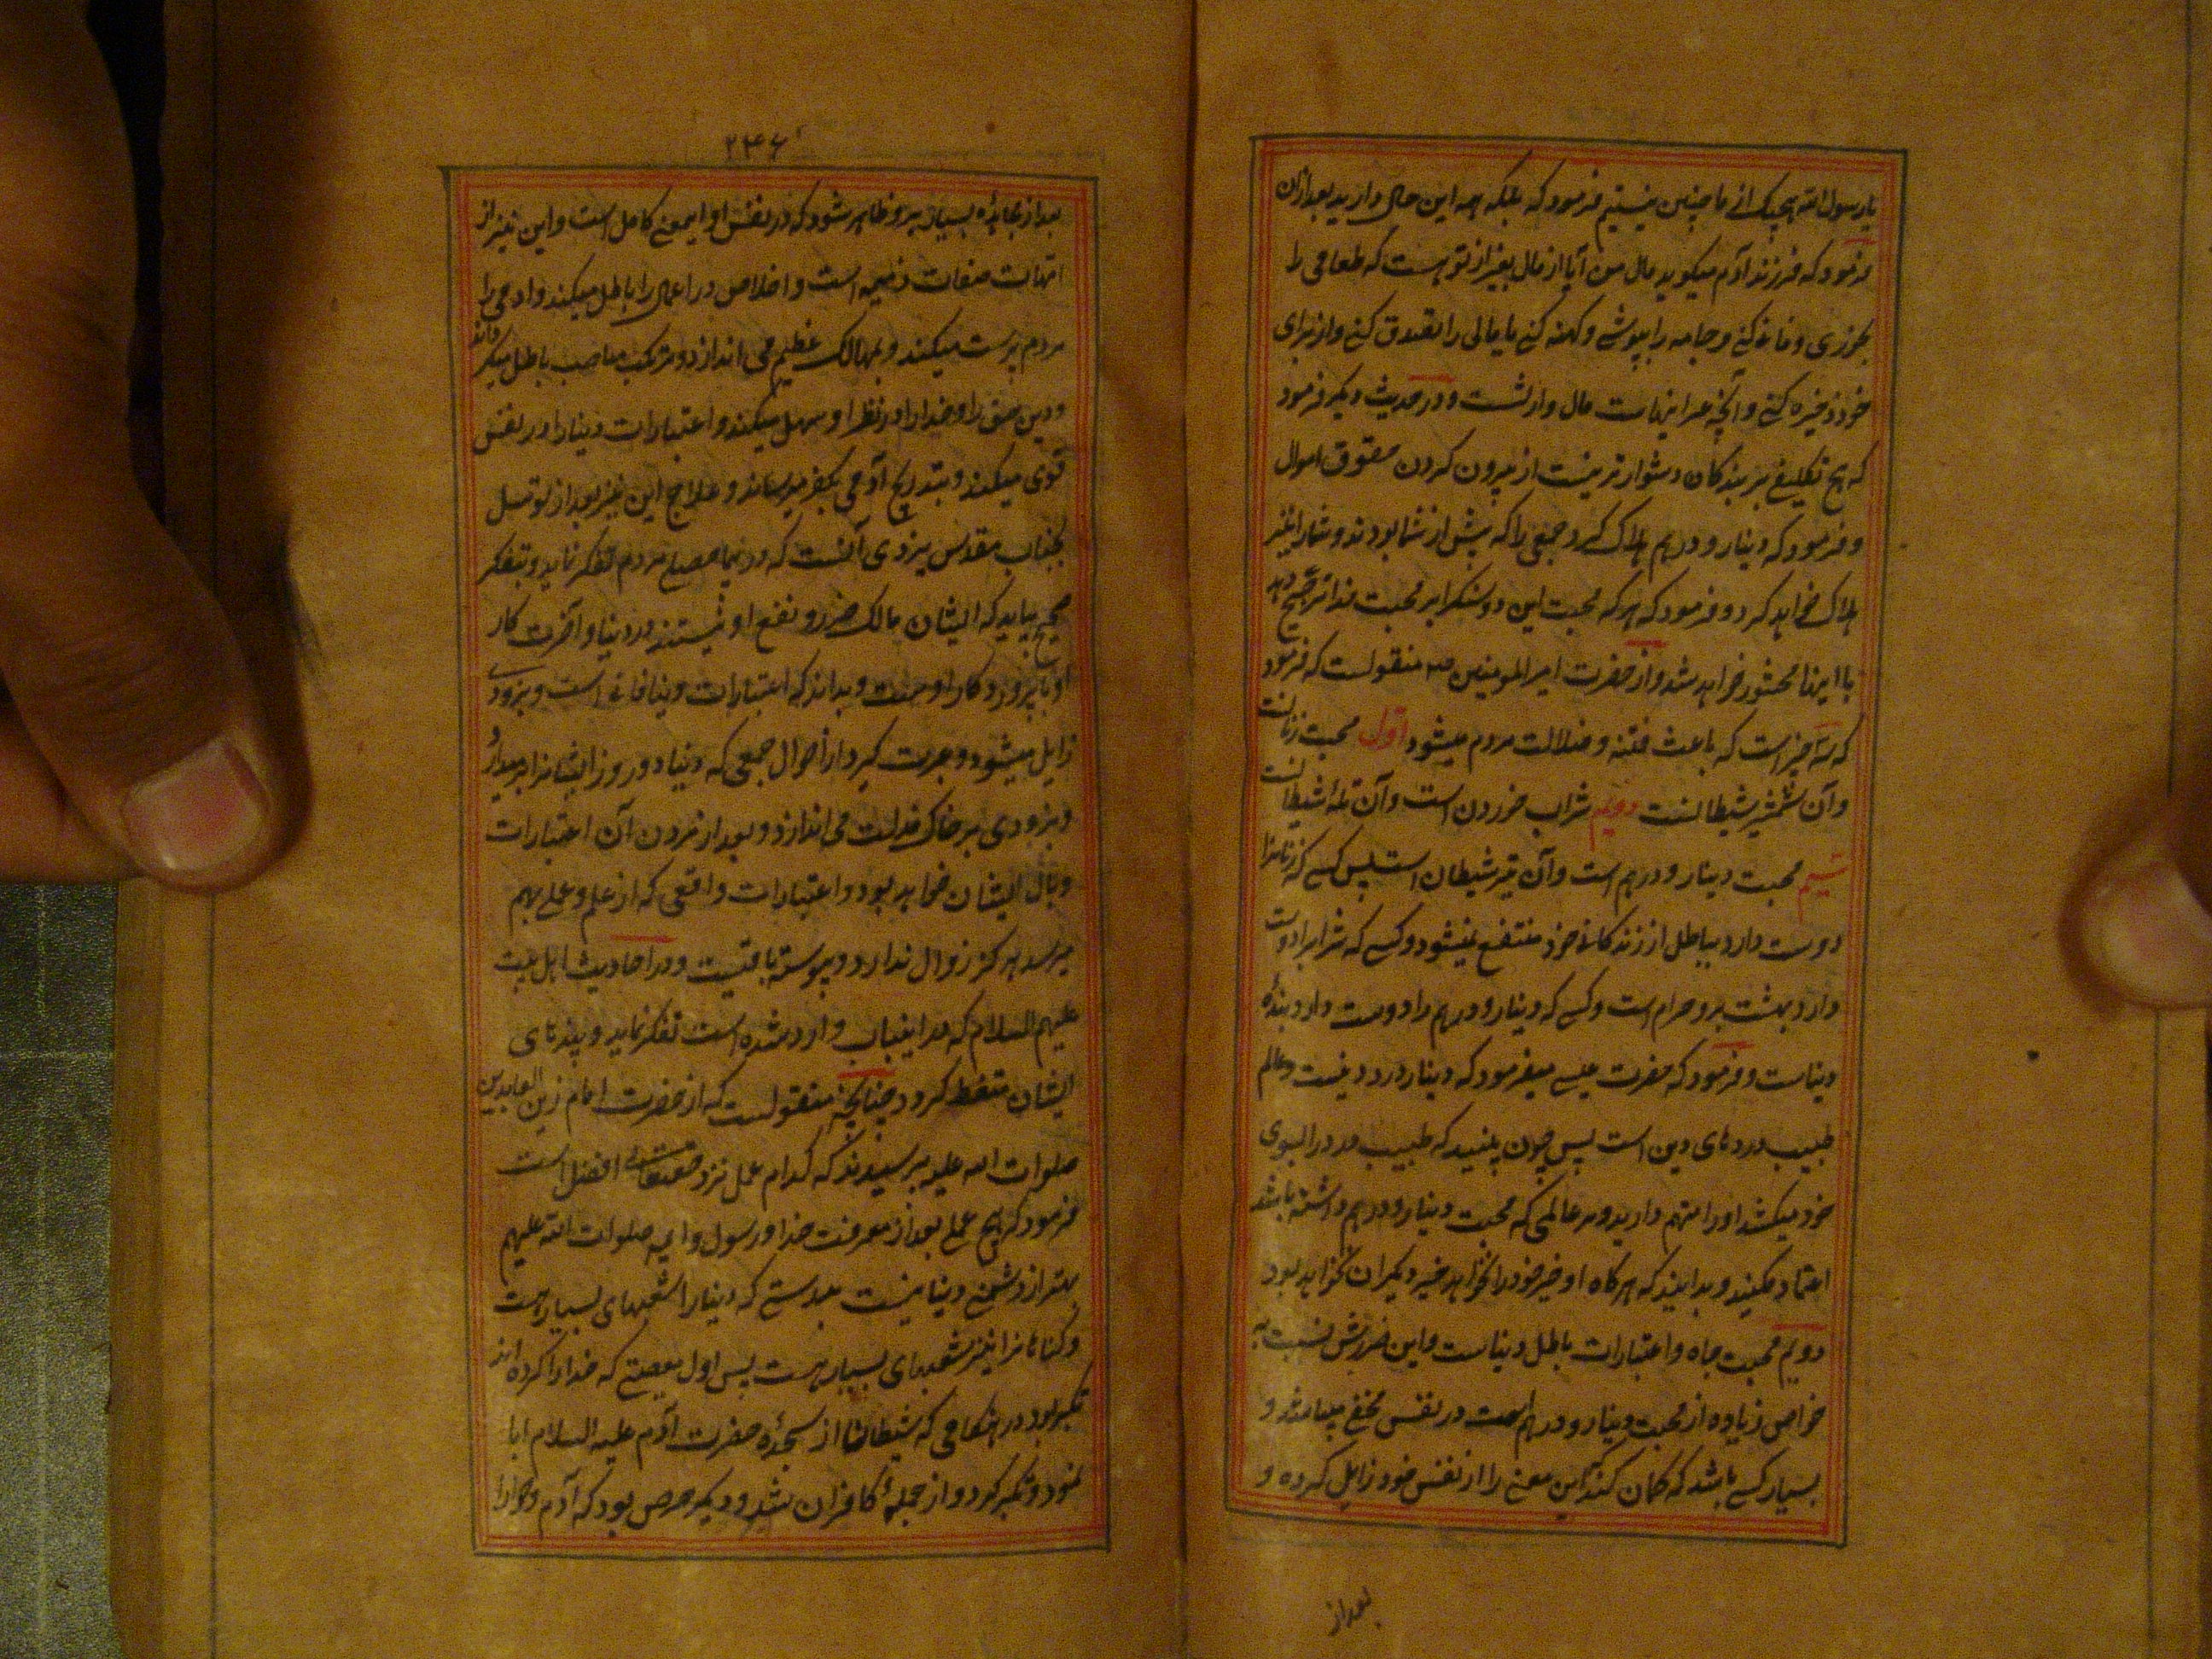 یا رسول الله هیچیک از ما چنین نیستیم فرمود که بلکه همه این حال دارید بعد ازان
فرمود که فرزند آدم میکوید مال من آیا از مال بغیر از تو هست که طعامی را
بخوری و فانی کنی و جامه را بپوشی و کهنه کنی یا مالی را تصدق کنی و از برای
خود ذخیره کنی و آنچه غیر اینهاست مال وارثست و در حدیث دیکر فرمود
که هیچ تکلیفی بر بندکان دشوارتر نیست از بیرون کردن حقوق اموال
و فرمود که دینار و درهم هلاک کرد جمعی را که پیش از شما بودند و شما را نیز
هلاک خواهد کرد و فرمود که هر که محبت این دو سنک را بر محبت خدا ترجیح دهد
با اینها محشور خواهد شد و از حضرت امیر المومنین ص منقولست که فرمود
که سه چیز است که باعث فتنه و ضلالت مردم میشود اول محبت زنانست
و آن شمشیر شیطانست دویم شراب خوردن است و آن تله شیطانست
سیم محبت دینار و درهم است و آن تیر شیطان است پس کسی که زنانرا
دوست دارد بباطل از زندکانی خود منتفع نمیشود و کسی که شرابرا دوست
دارد بهشت برو حرام است و کسی که دینار و درهم را دوست دارد بندهٔ
دنیاست و فرمود که حضرت عیسی میفرمود که دینار درد دینست و عالم
طبیب دردهای دین است پس چون بینید که طبیب درد را بسوی
خود میکشد او را متهم دارید و هر عالمی که محبت دینار و درهم داشته باشد
اعتماد مکنید و بدانید که هر کاه او خیر خود را نخواهد خیر دیکران نخواهد بود
دویم محبت جاه و اعتبارات باطل دنیاست و این ضررش نسبت به
خواص زیاده از محبت دینار و درهم است در نفس مخفی میباشد و
بسیار کسی باشد که کمان کند که این معنی را از نفس خود زایل کرده و
بعد از
۲۴۶
بعد از مجاهده بسیار برو ظاهر شود که در نفس او این معنی کامل است و این نیز از
امهات صفات ذمیمه است و اخلاص در اعمال را باطل میکند و آدمی را
مردم پرست میکند و بمهالک عظیم می اندازد و مرتکب مناصب باطل میکرداند
و دین حق را و خدا را در نظر او سهل میکند و اعتبارات دنیا را در نفس
قوی میکند و بتدریج آدمی بکفر میرساند و علاج این نیز بعد از توسل
بجناب مقدس یزدی آنست که در مصالح مردم تفکر نماید و بتفکر
صحیح بیابد که ایشان مالک ضرر و نفع او نیستند در دنیا و آخرت کار
او با پروردکار اوست و بداند که اعتبارات دنیا فانی است و بزودی
زایل میشود و عبرت کیرد از احوال جمعی که دنیا دو روز ایشانرا برمیدارد
و بزودی بر خاک مذلت می اندازد و بعد از مردن آن اعتبارات
وبال ایشان خواهد بود و اعتبارات واقعی که از علم و عمل بهم
میرسد هرکز زوال ندارد و پیوسته باقیست و در احادیث اهل بیت
علیهم السلام که در اینباب وارد شده است تفکر نماید و پندهای
ایشان متعظ کردد چنانچه منقولست که از حضرت امام زین العابدین
صلوات الله علیه پرسیدند که کدام عمل نزد حقتعالی افضل است
فرمود که هیچ عملی بعد از معرفت خدا و رسول و ایمه صلوات الله علیهم
بهتر از دشمنی دنیا نیست بدرستی که دنیا را شعبهای بسیار هست
و کناهانرا نیز شعبهای بسیار هست پس اول معصیتی که خدا را کرده اند
تکبر بود در هنکامی که شیطان از سجدهٔ حضرت آدم علیه السلام ابا
نمود و تکبر کرد و از جملهٔ کافران شد و دیکر حرص بود که آدم و حوا را